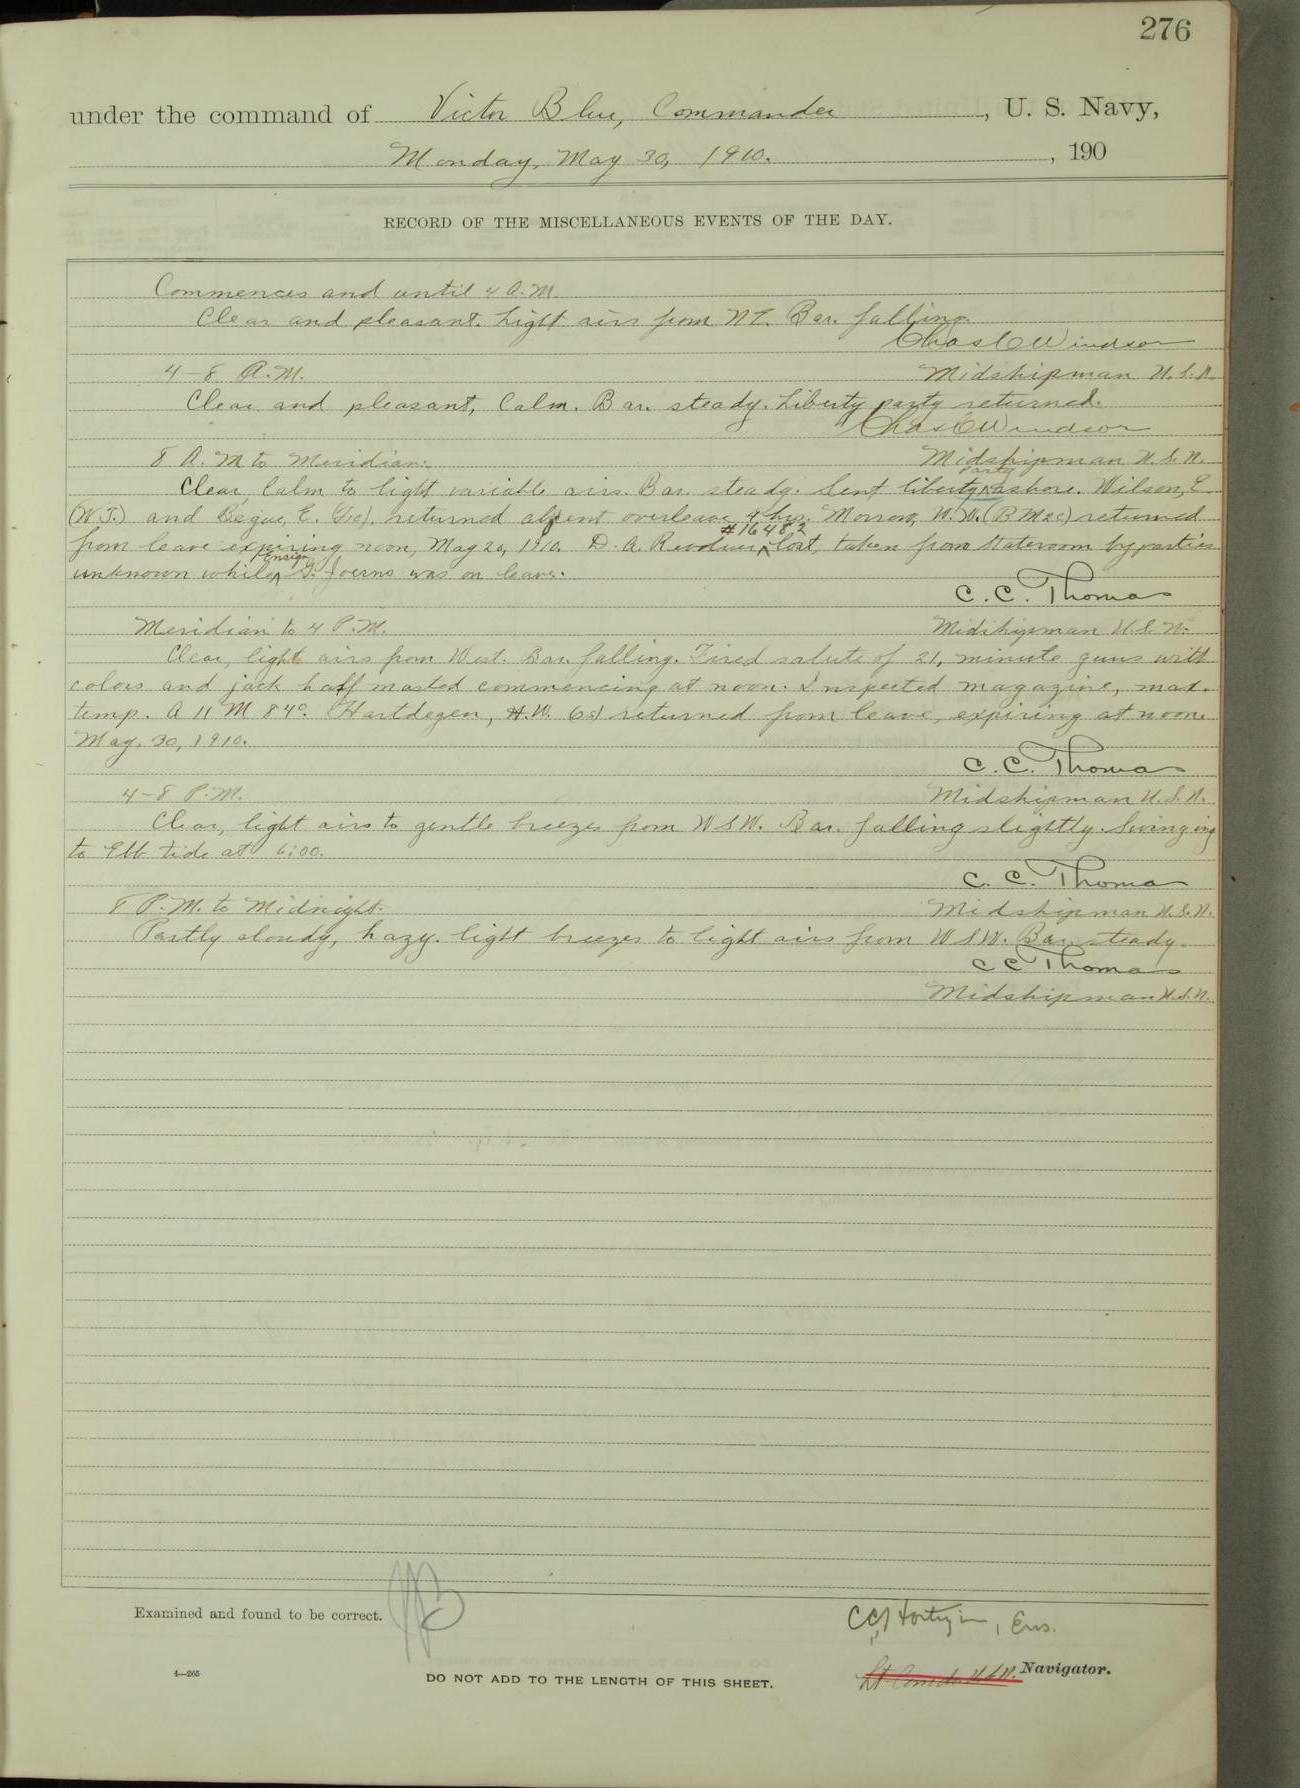 276
under the command of Victor Blue, Commander, U. S. Navy,
Monday, May 30, 1910. , 190
RECORD OF THE MISCELLANEOUS EVENTS OF THE DAY.
Commences and until 4 A.M.
Clear and pleasant. Light airs from NE. Bar. falling.
Chas C Windsor
4-8 A.M. Midshipman U.S.N.
Clear and pleasant, Calm. Bar. steady. Liberty party returned.
Chas C Windsor
8 A.M to Meridian: Midshipman U.S.N.
Clear, Calm to light variable airs. Bar. steady. Sent liberty party ashore. Wilson, E
(W.T.) and Begue, E. returned absent overleave 4 hrs. Morrow, W. (BM2c) returned
from leave expiring noon, May 20, 1910. D. A. Revolver #16482 lost, taken from stateroom by parties
unknown while Ensign G. Joerns was on leave.
C. C. Thomas
Meridian to 4 P.M. Midshipman U.S.N.
Clear, light airs from West. Bar. falling. Fired salute of 21, minute guns with
colors and jack half masted commencing at noon. Inspected magazine, max.
temp. A 11 M 84°. Hartdegen, H.W. returned from leave, expiring at noon
May. 30, 1910.
C. C. Thomas
4-8 P.M. Midshipman U.S.N.
Clear, light airs to gentle breezes from WSW. Bar. falling slightly. Swinging
to Ebb tide at 6:00.
C. C. Thomas
8 P.M. to Midnight. Midshipman U.S.N.
Partly cloudy, hazy. light breezes to light airs from WSW. Bar. steady.
C C Thomas
Midshipman U.S.N.
Examined and found to be correct.
, Ens.
Lt Comdr U.S.N. Navigator.
4—265
DO NOT ADD TO THE LENGTH OF THIS SHEET.